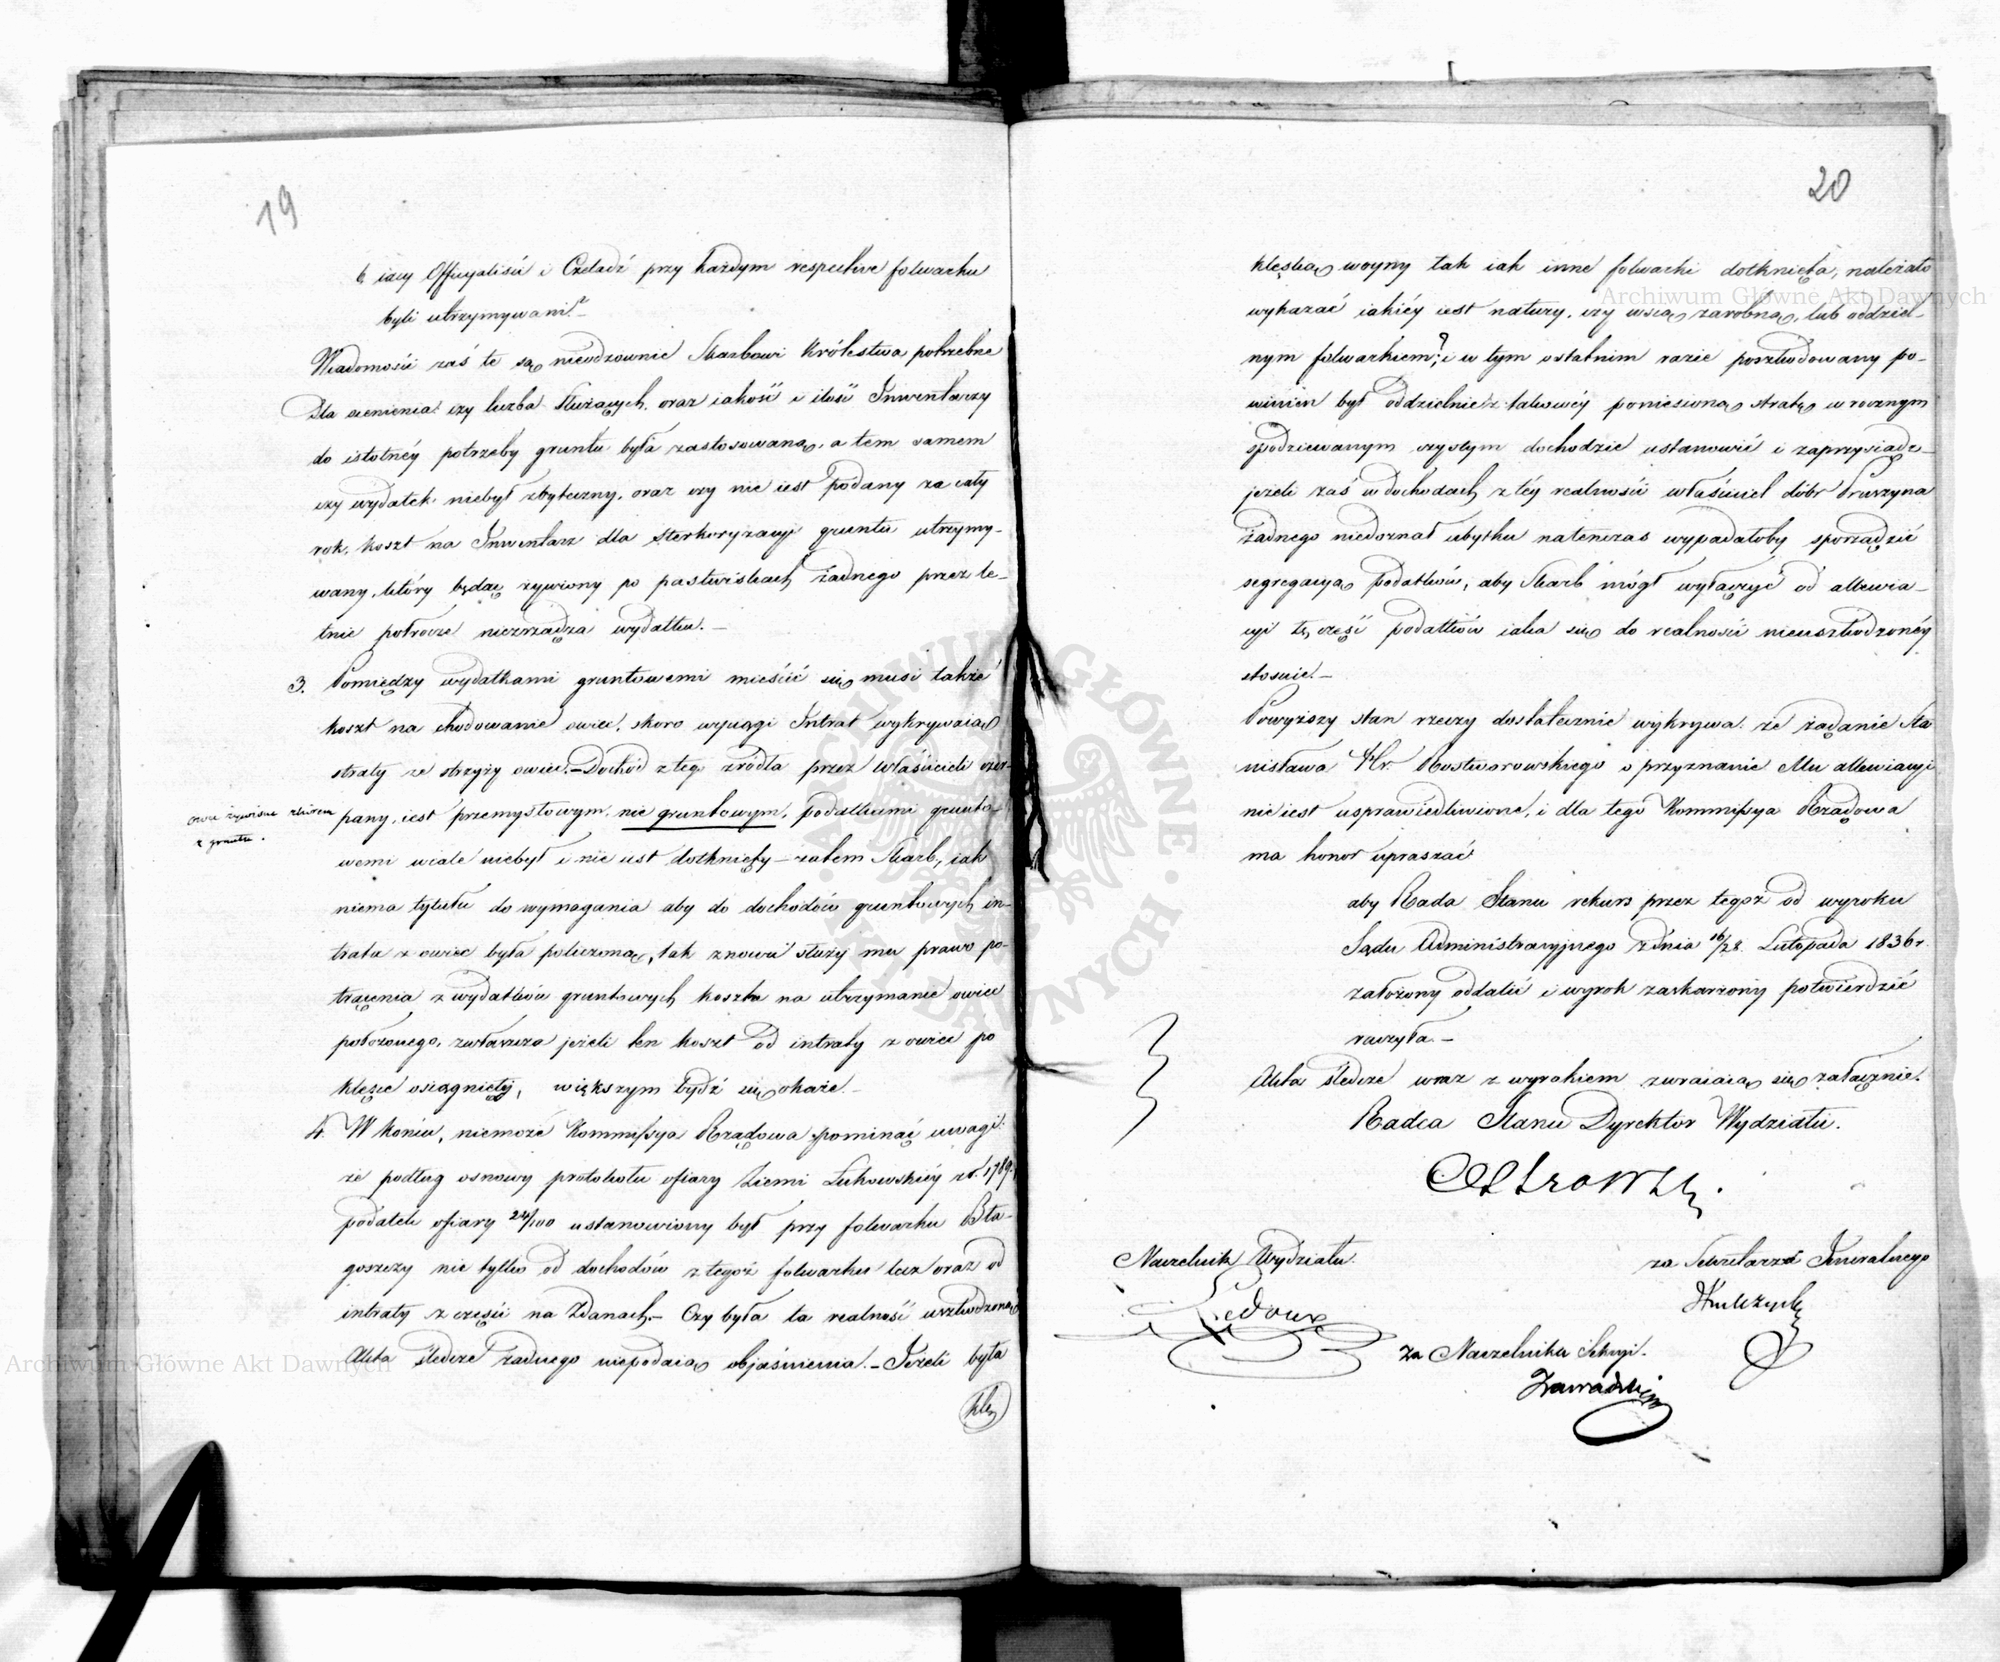 19
b, iacy Officyaliści i Czeladź przy każdym respective folwarku
byli utrzymywani?—
Wiadomości zaś te są nieodzownie Skarbowi Królestwa potrzebne
dla ocenienia: czy liczba służących, oraz iakość i ilość Inwentarzy
do istotnéy potrzeby gruntu była zastosowaną, a tem samem
czy wydatek niebył zbyteczny, oraz czy nie iest podany za cały
rok, koszt na Inwentarz dla sterkoryzacyi gruntu utrzymy-
wany, który będąc żywiony po pastwiskach żadnego przez le-
tnie półrocze niezrządza wydatku.—
3. Pomiędzy wydatkami gruntowemi mieścić się musi także
koszt na chodowanie owiec, skoro wyciągi Intrat wykrywaią
straty ze strzyży owiec.— Dochód z tego źródła przez właścicieli czer-
pany, iest przemysłowym, nie gruntowym, podatkami grunto-
owce żywione zbiorem
z gruntu.
wemi wcale niebył i nie iest dotknięty — zatem Skarb, iak
niema tytułu do wymagania aby do dochodów gruntowych in-
trata z owiec była policzoną, tak znowu służy mu prawo po-
trącenia z wydatków gruntowych kosztu na utrzymanie owiec
położonego, zwłaszcza jeżeli ten koszt od intraty z owiec po
klęsce osiągniętéy, większym bydź się okaże.—
4. W końcu, niemoże Kommissya Rządowa pominąć uwagi:
że podług osnowy protokołu ofiary Ziemi Łukowskiéy z r. 1789.
podatek ofiary 24/100 ustanowiony był przy folwarku Bła-
goszczy nie tylko od dochodów z tegoż folwarku lecz oraz od
intraty z części na Zdanach.— Czy była ta realność uszkodzoną
Akta śledcze żadnego niepodaią objaśnienia.— Jeżeli była
klę
20
klęską woyny tak iak inne folwarki dotknięta, należało
wykazać iakiéy iest natury, czy wsią zarobną, lub oddziel-
nym folwarkiem?; i w tym ostatnim razie poszkodowany po-
winien był oddzielnie z takowéy poniesioną stratę w rocznym
spodziewanym czystym dochodzie ustanowić i zaprzysiądz—
jeżeli zaś w dochodach z téy realności właściciel dóbr Pruszyna
żadnego niedoznał ubytku natenczas wypadałoby sporządzić
segregacyą podatków, aby Skarb mógł wyłączyć od allewia-
cyi tę część podatków iaka się do realności nieuszkodzonéy
stosuie.—
Powyższy stan rzeczy dostatecznie wykrywa: że żądanie Sta
nisława Hr. Rostworowskiego o przyznanie Mu allewiacyi
nie iest usprawiedliwione, i dla tego Kommissya Rządowa
ma honor upraszać
aby Rada Stanu rekurs przez tegoż od wyroku
Sądu Administracyjnego z dnia 16/28 Listopada 1836 r.
założony oddalić i wyrok zaskarżony potwierdzić
raczyła.—
Akta śledcze wraz z wyrokiem zwracaią się załącznie.
Radca Stanu Dyrektor Wydziału.
Naczelnik Wydziału.
za Sekretarza Jeneralnego
Ledoux
za Naczelnika Sekcyi.
Zawadzki
Archiwum Główne Akt Dawnych
Archiwum Główne Akt Dawnych
ARCHIWUM GŁÓWNE AKT DAWNYCH